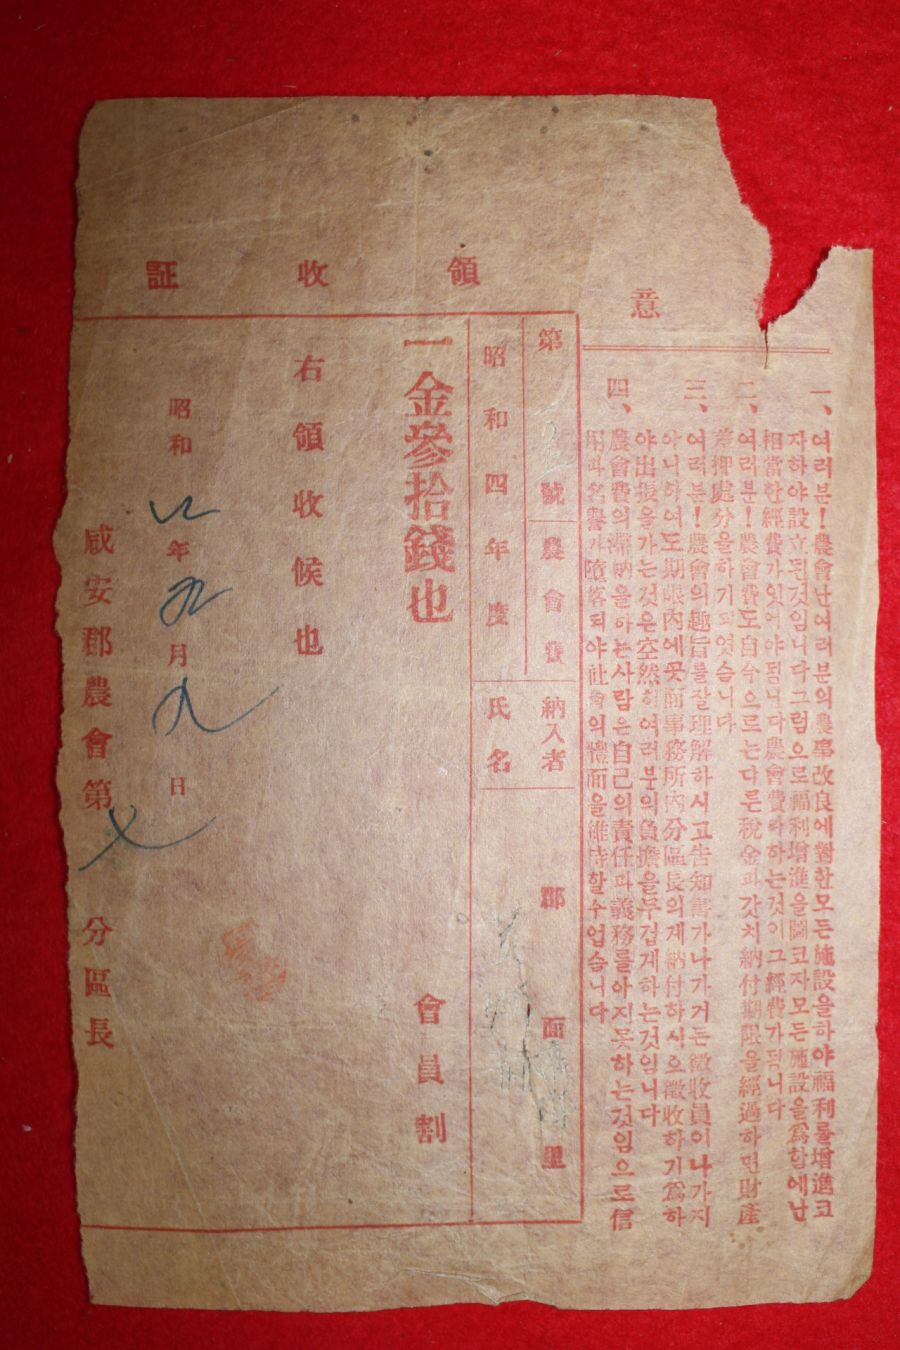 意
一、여러분!農會난여러분의農事改良에對한모든施設을하야福利를增進코
자하야設立된것입니다그럼으로福利增進을圖코자모든施設을爲함에난
相當한經費가잇어야됨니다農會費라하는것이그經費가됨니다
二、여러분!農會費도自今으로는다른稅金과갓치納付期限을經過하면財產
差押處分을하기되엿슴니다
三、여러분!農會의趣旨를잘理解하시고告知書가나가거든徵收員이나가지
아니하여도期限內에곳面事務所內分區長의게納付하시오徵收하기爲하
야出張을가는것은空然히여러분의負擔을무겁게하는것임니다
四、農會費의滯納을하는사람은自己의責任과義務를아지못하는것임으로信
用과名譽가墮落되야社會의體面을維持할수업슴니다
領收証
第 號 農會費 納入者 郡 面 里
昭和四年度 氏名
一金參拾錢也 會員割
右領收候也
昭和 年 九月 九日
咸安郡農會第七 分區長